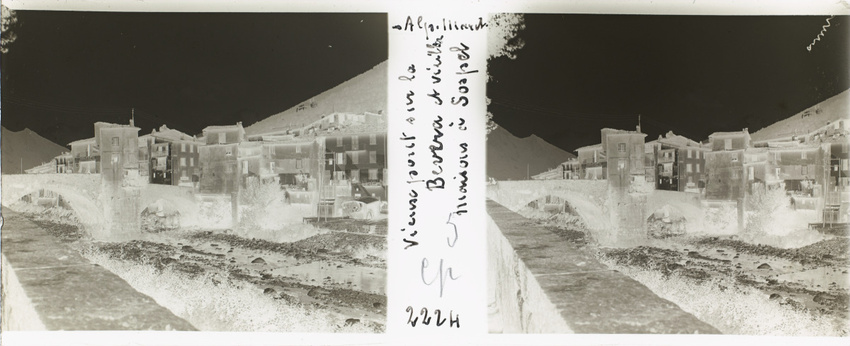 Alp. Marit.
Vieux pont sur la
Bevera et vieilles
maisons à Sospel
CP
2224